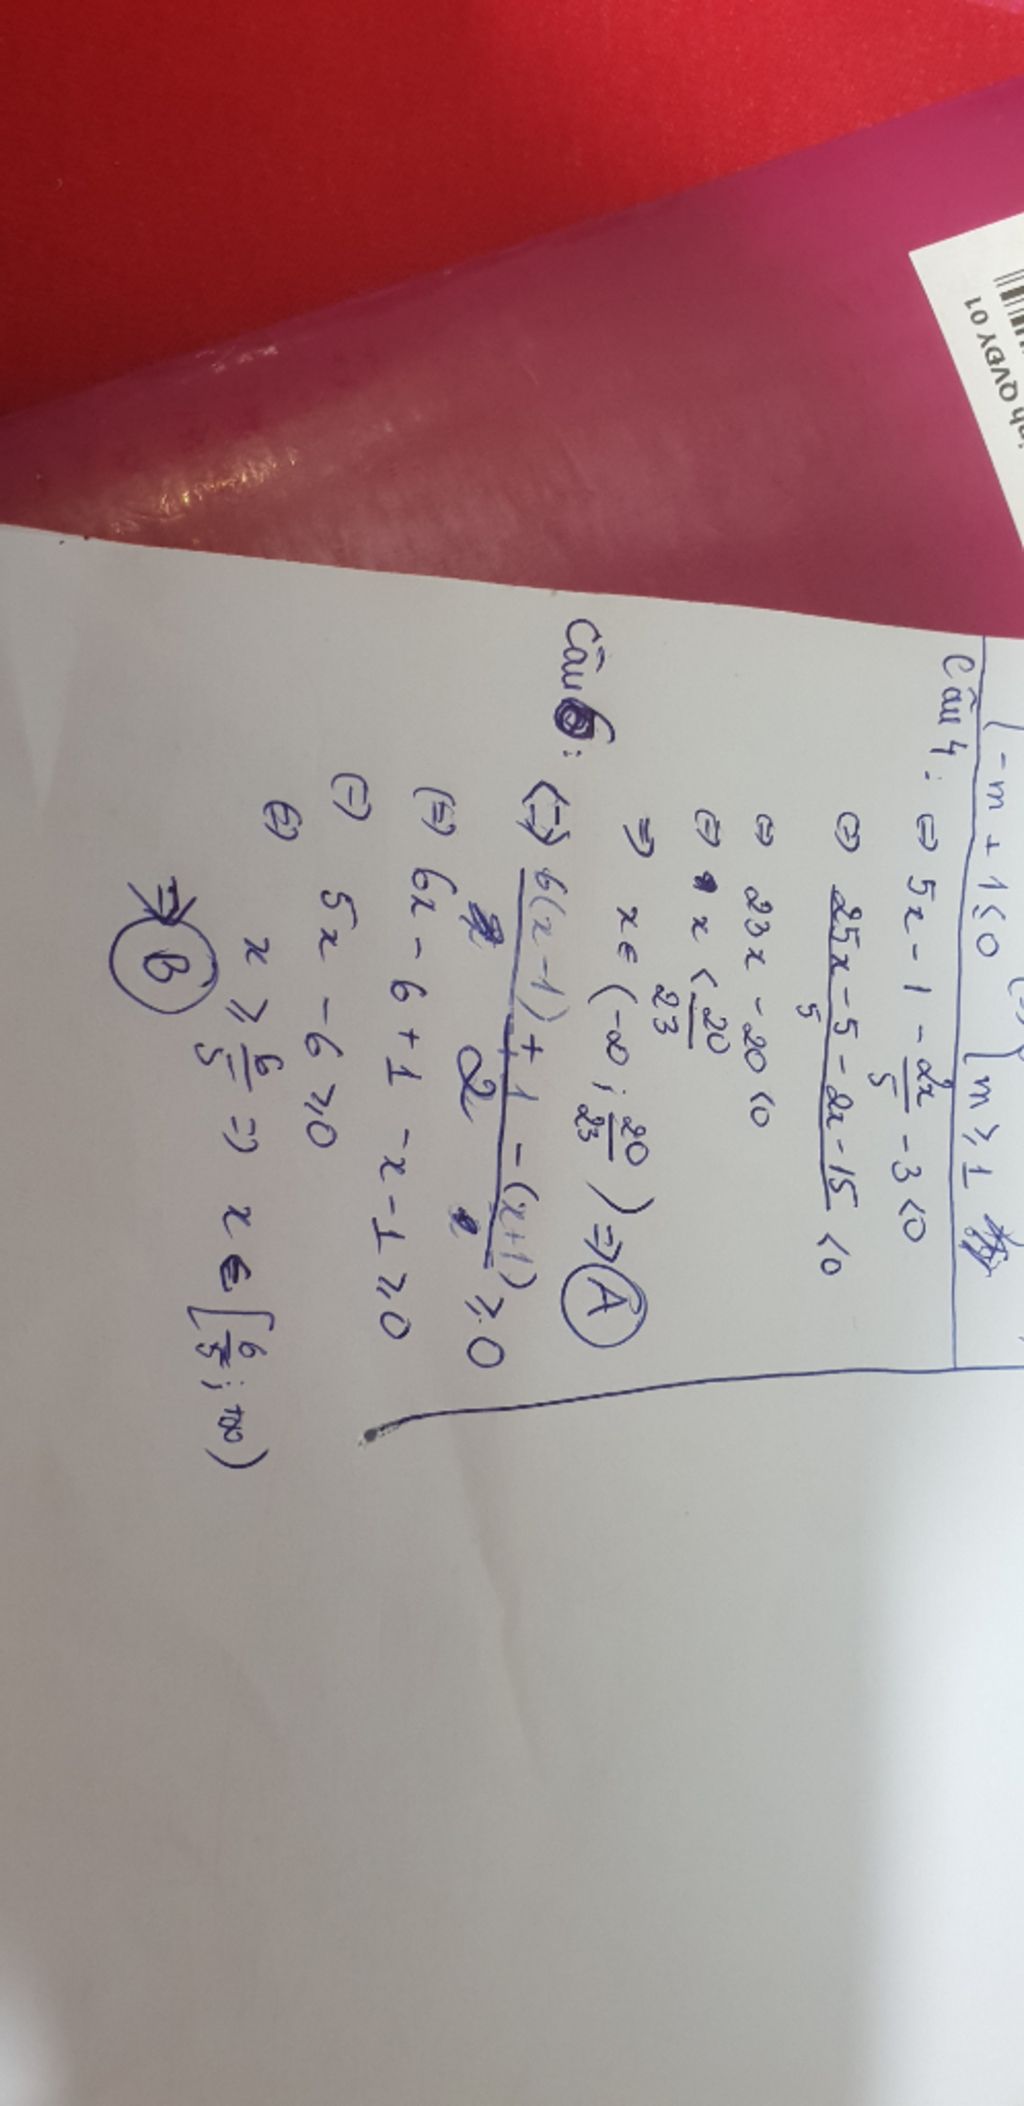 QVĐY 01
-m + 1 ≤ 0
m ≥ 1
Câu 4: ⇔ 5x - 1 - 2x/5 - 3 < 0
⇔ (25x - 5 - 2x - 15)/5 < 0
⇔ 23x - 20 < 0
⇔ x < 20/23
⇒ x ∈ (-∞; 20/23) ⇒ A
Câu 6: ⇔ (6(x - 1) + 1 - (x + 1))/2 ≥ 0
⇔ 6x - 6 + 1 - x - 1 ≥ 0
⇔ 5x - 6 ≥ 0
⇔ x ≥ 6/5 ⇒ x ∈ [6/5; +∞)
⇒ B